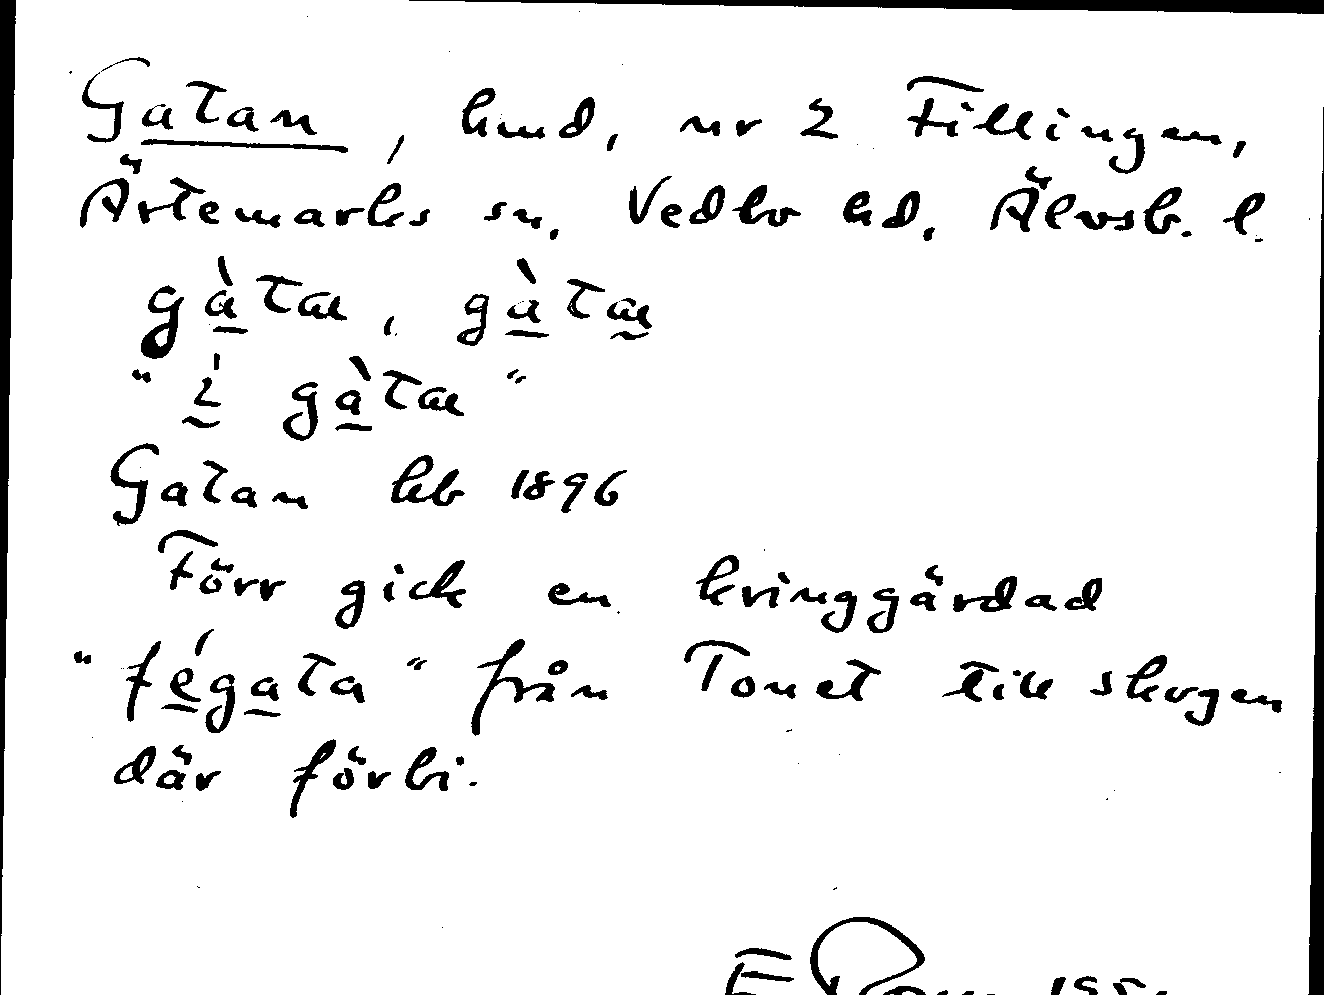 Gatan, hmd, nr 2 Fillingen,
Ärtemarks sn, Vedbo hd, Älvsb. l.
gàtæ, gàtæ
"í gàtæ"
Gatan kb 1896
Förr gick en kringgärdad
"fégata" från Tonet till skogen
där förbi.